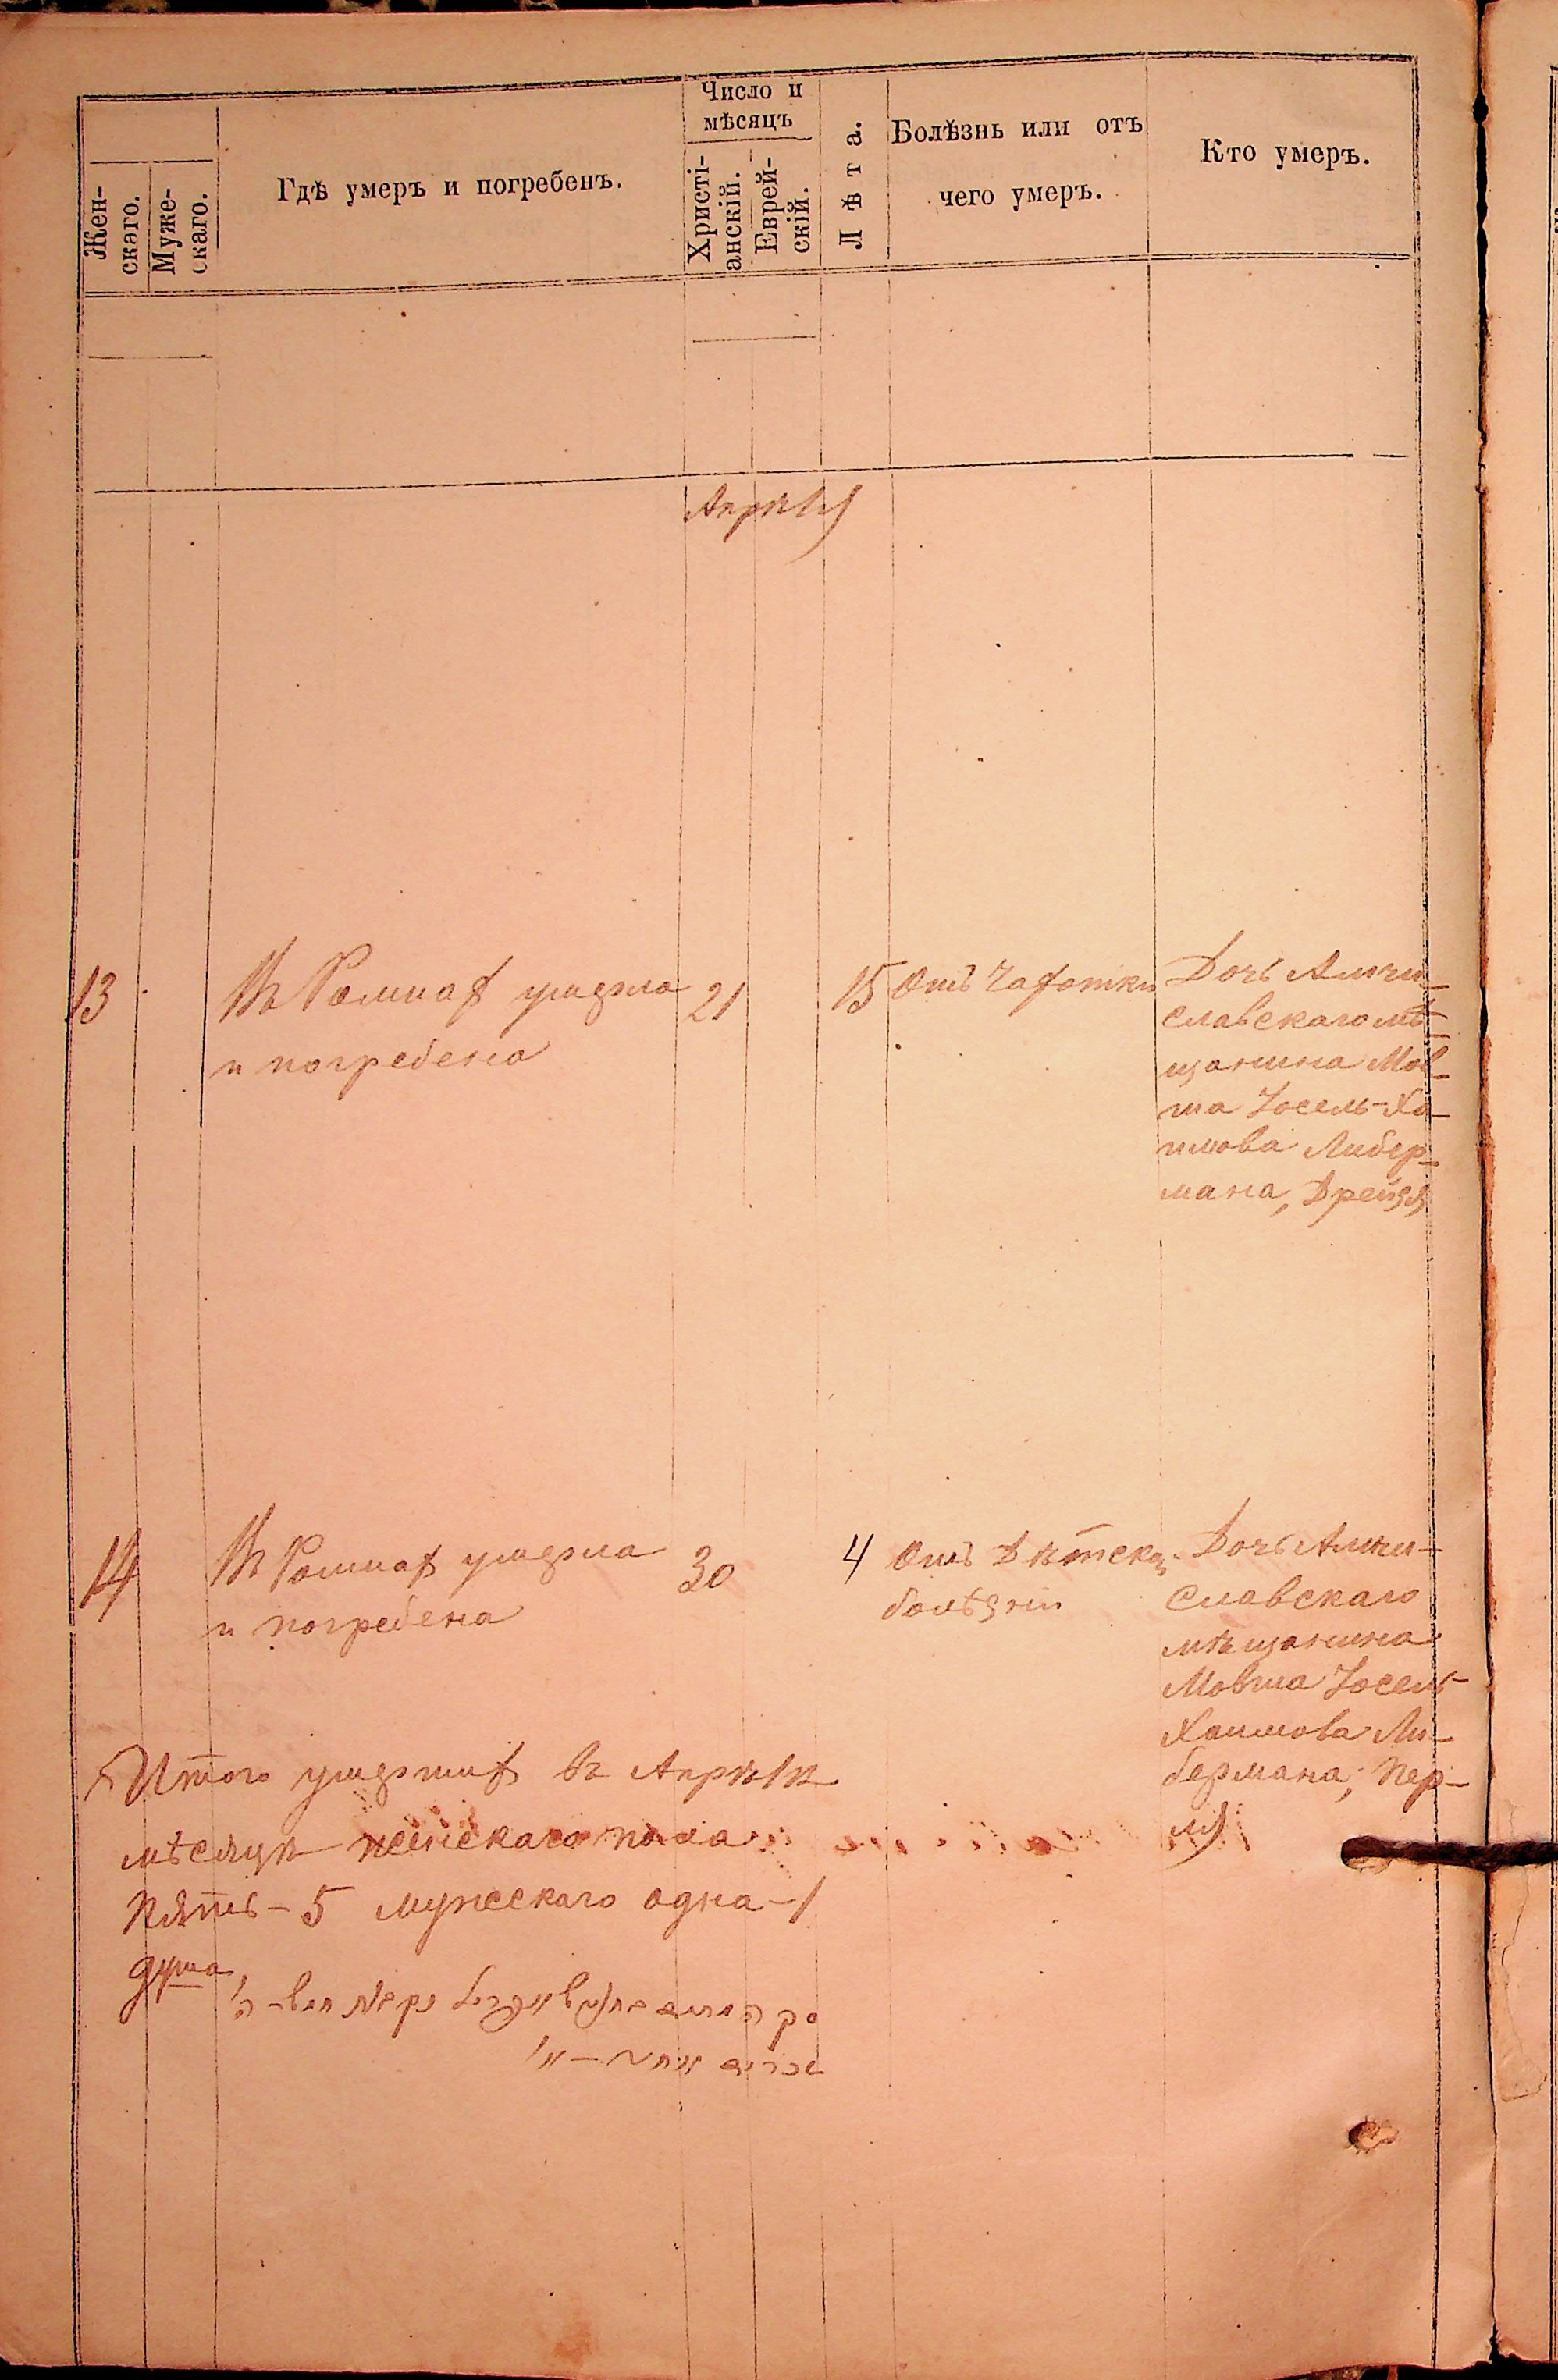 Число и
мѣсяцъ
Жен-
скаго.
Муже-
скаго.
Гдѣ умеръ и погребенъ.
Христі-
анскій.
Еврей-
скій.
Лѣта.
Болѣзнь или отъ
чего умеръ.
Кто умеръ.
Апрѣля
13
Въ Ромнах умерла
и погребена
21
15
Отъ Чахотки
Дочь Амчи-
славскаго мѣ-
щанина Мов-
ша Іосель-Ха-
имова Либер-
мана, Дрейзя
14
Въ Ромнах умерла
и погребена
30
4
Отъ Дѣтской
болѣзни
Дочь Амчи-
славскаго
мѣщанина
Мовша Іосель
Хаимова Ли-
бермана, Пер-
ля
Итого умерших въ Апрѣлѣ
мѣсяцѣ женскаго пола
пять - 5 мужескаго одна - 1
душа